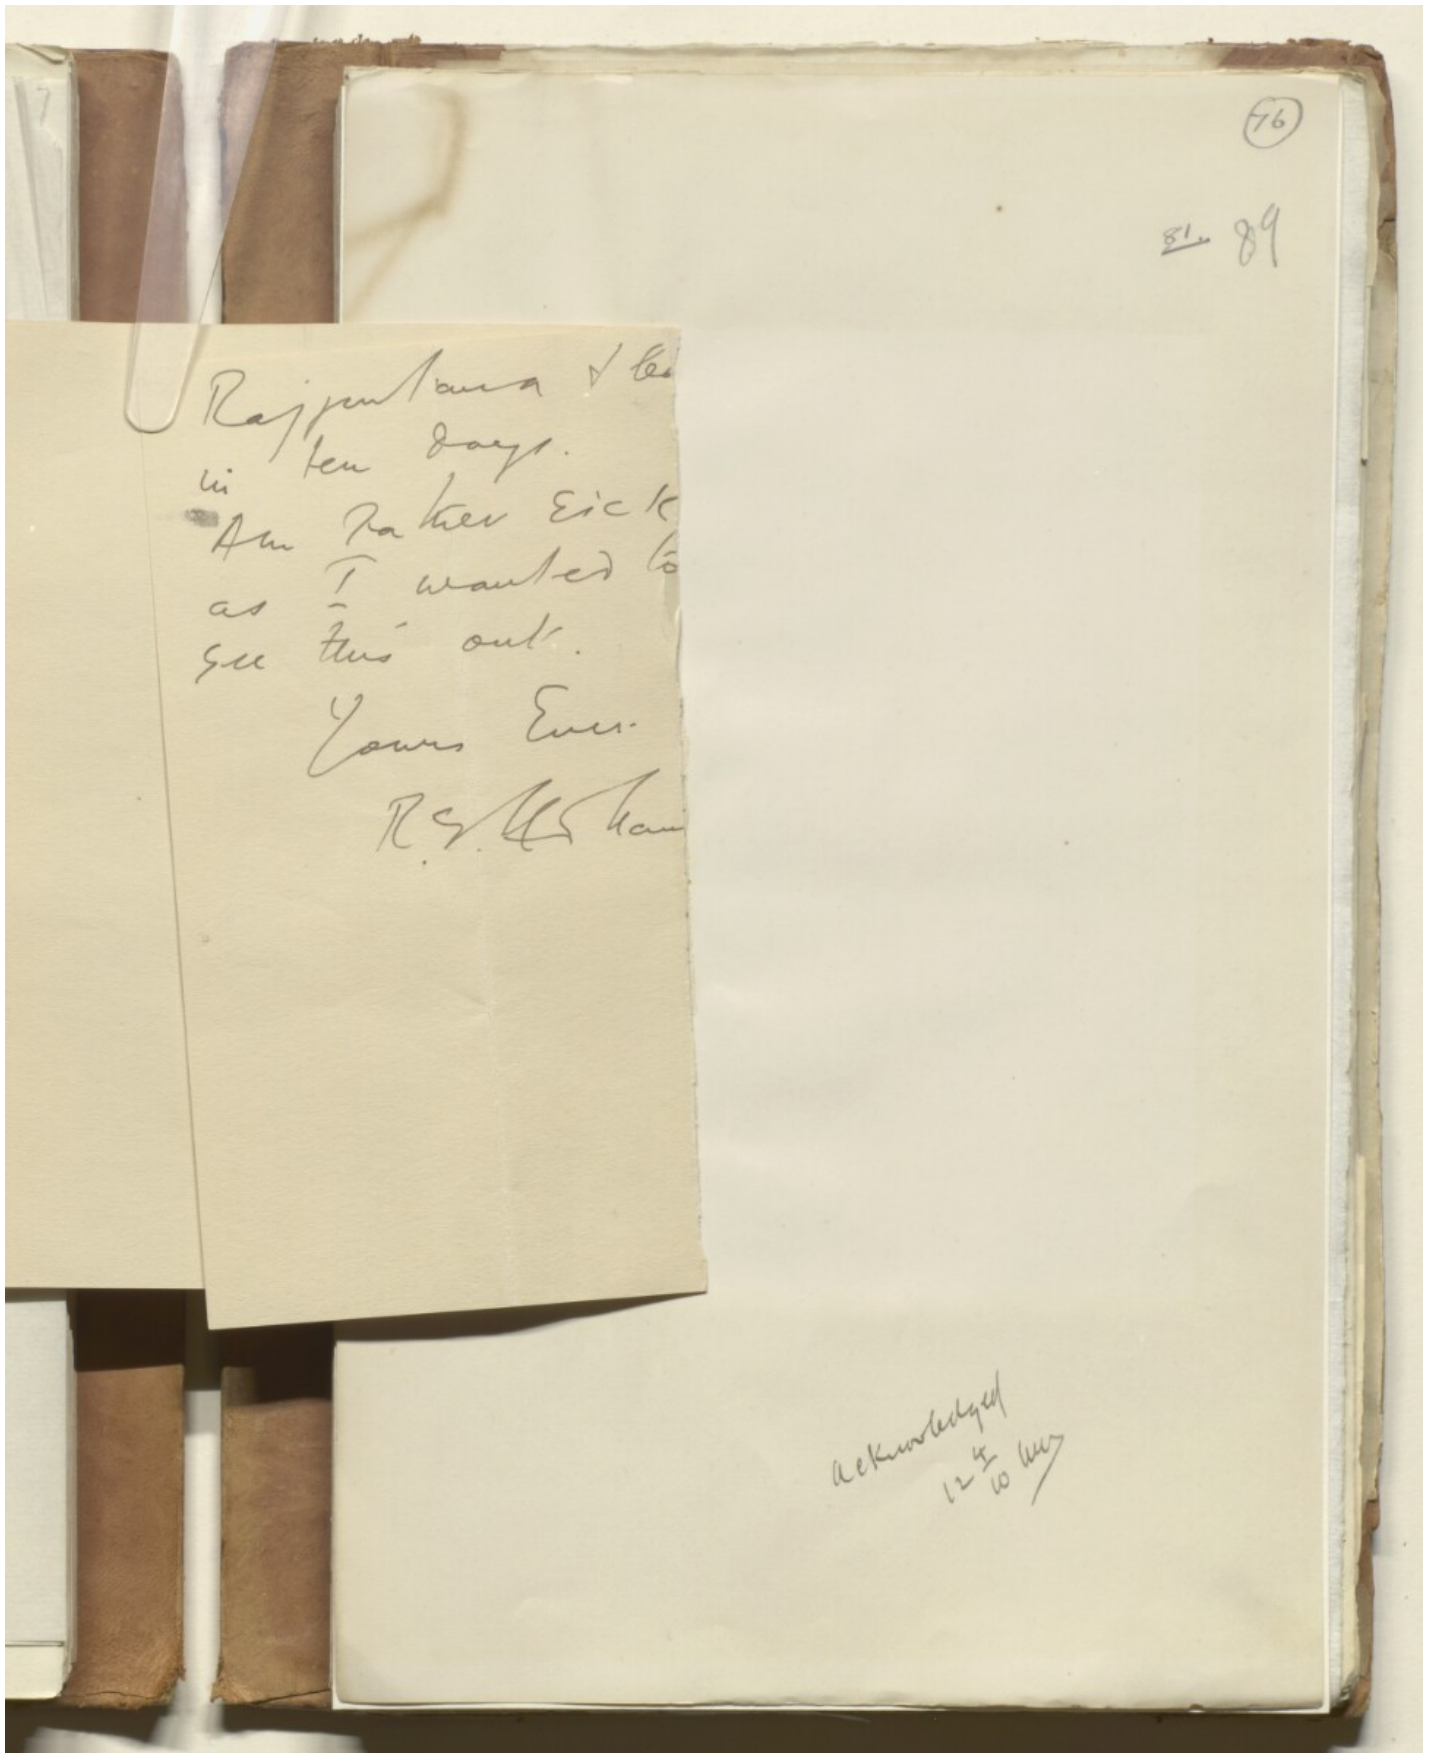 76
81. 89
Rajputana &
in ten days.
Am Rather Sick
as I wanted to
see this out.
Yours Ever.
acknowledged
12 4/10